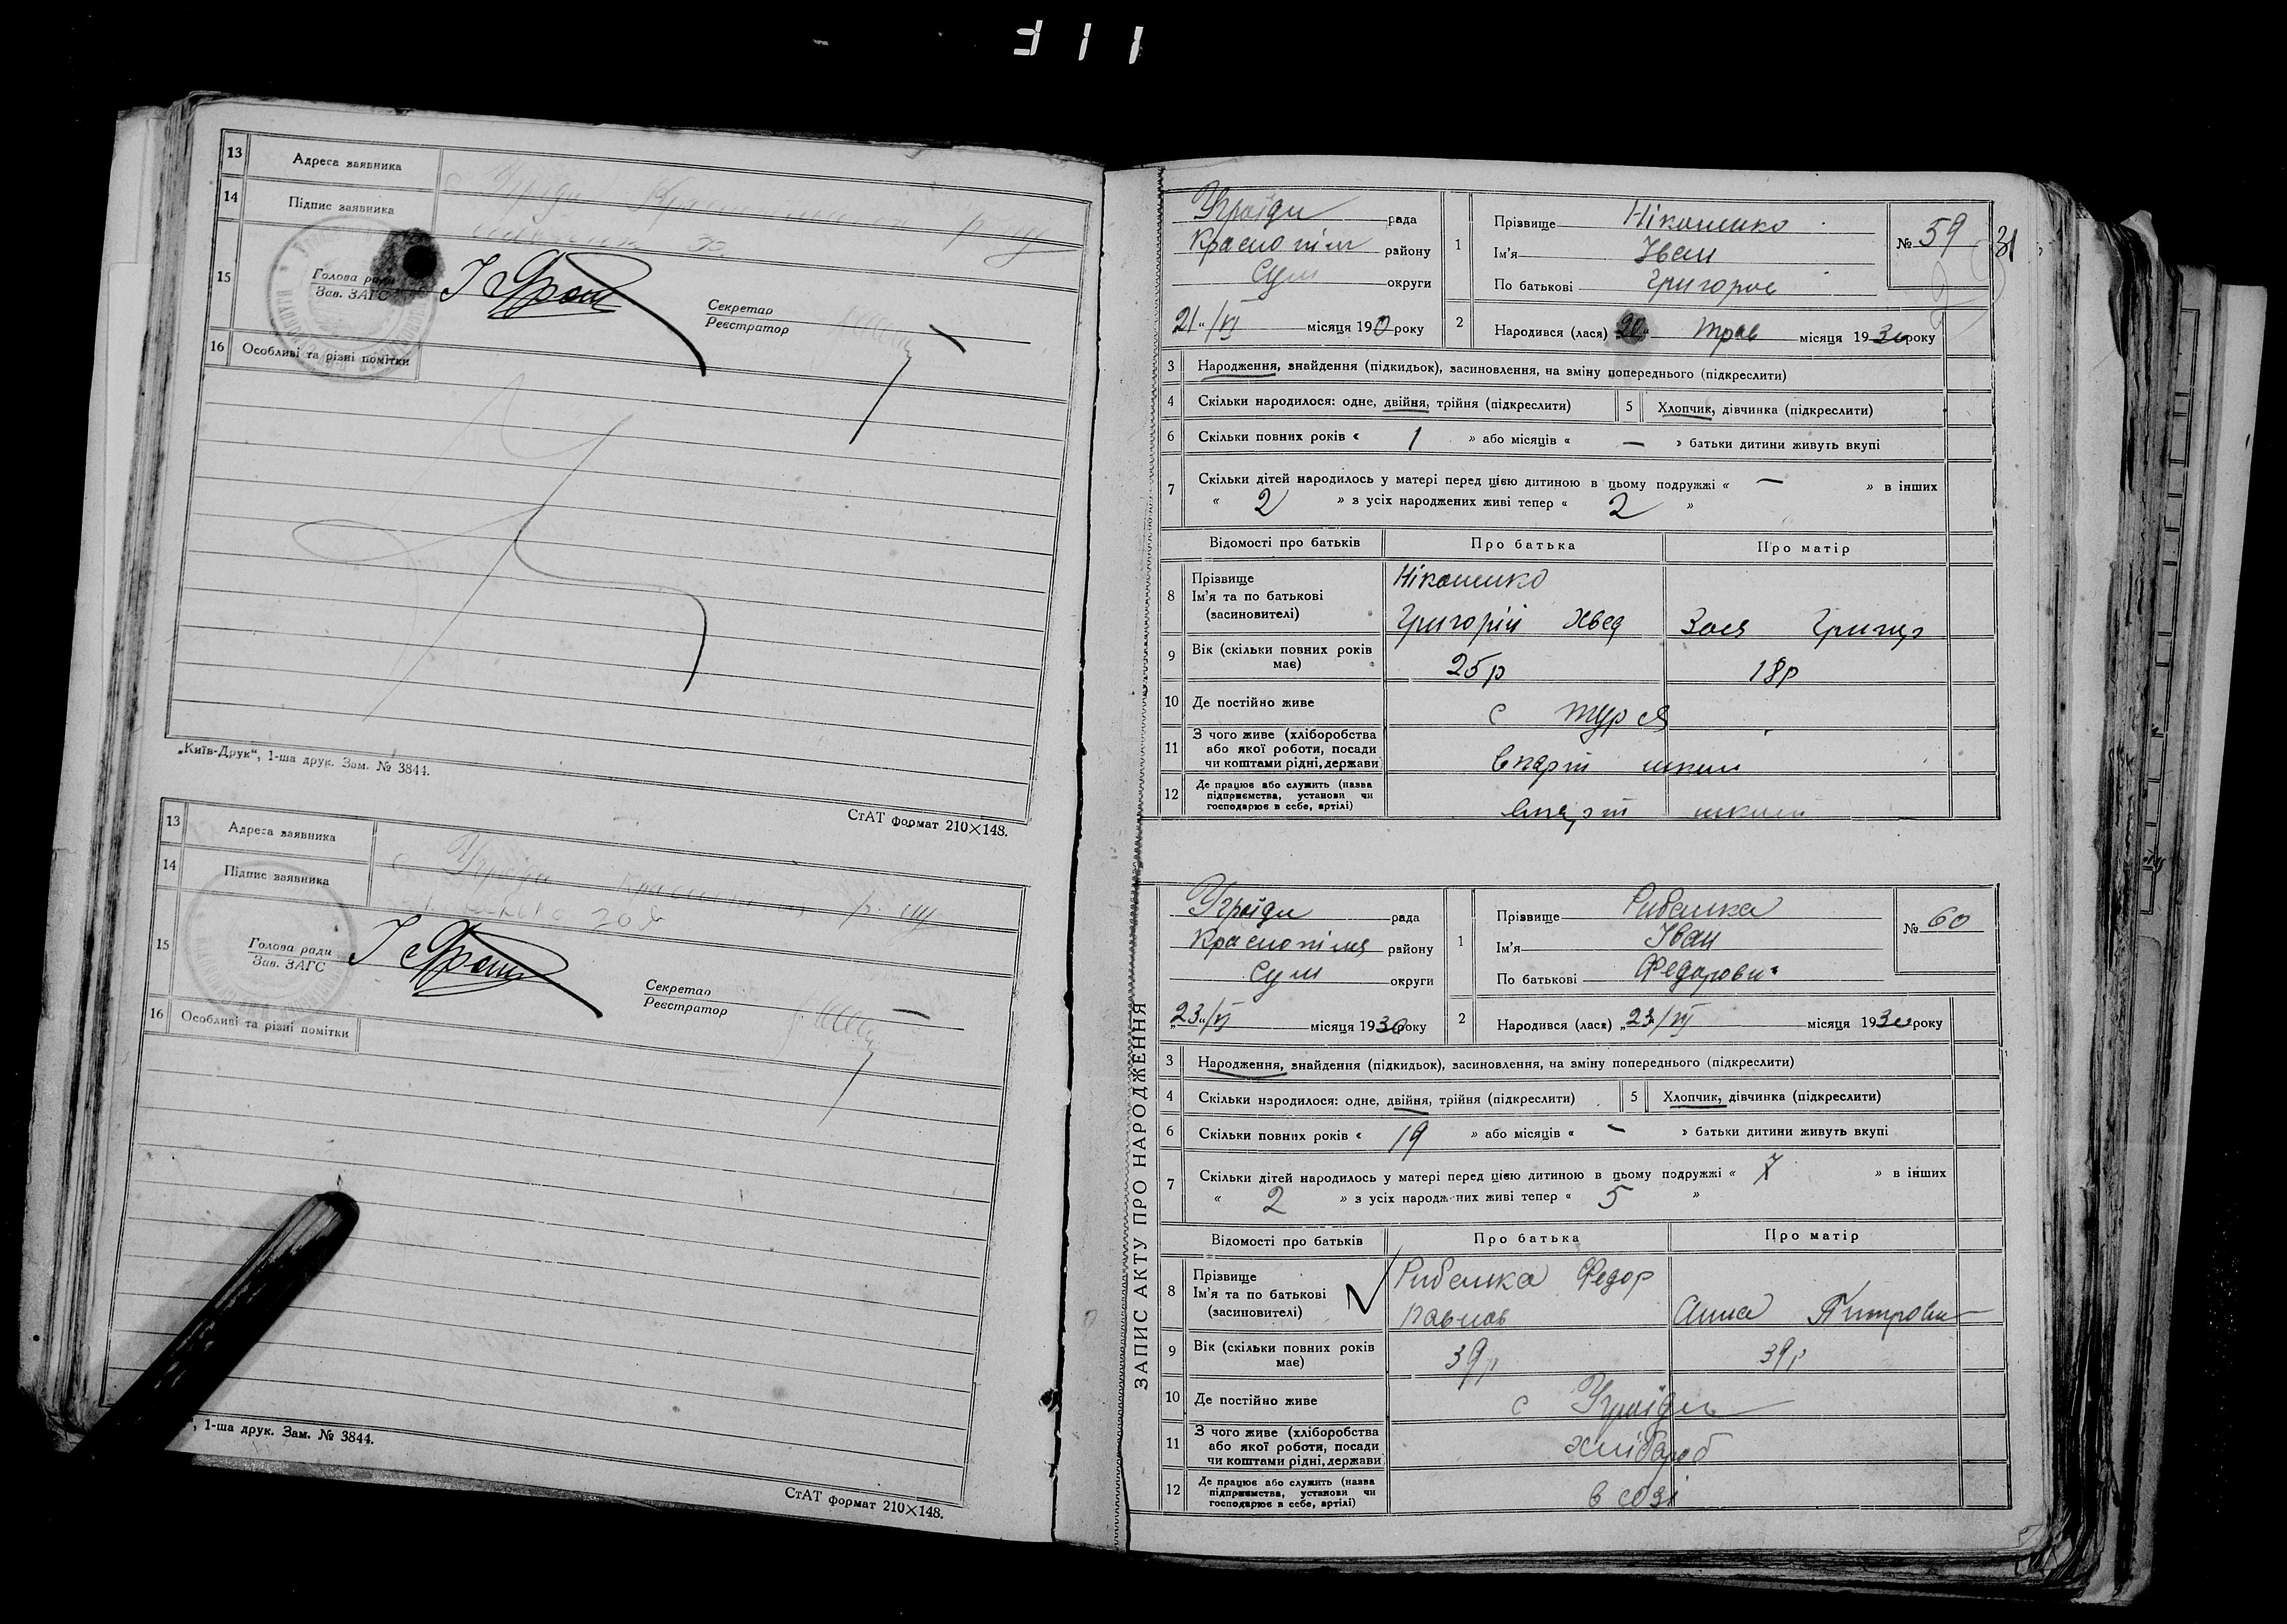 13 Адреса заявника
14 Підпис заявника
15 Голова ради
Зав. ЗАГС
Секретар
Реєстратор
16 Особливі та різні помітки
„Київ-Друк“, 1-ша друк. Зам. № 3844.
СтАТ формат 210×148.
13 Адреса заявника
14 Підпис заявника
15 Голова ради
Зав. ЗАГС
Секретар
Реєстратор
16 Особливі та різні помітки
“, 1-ша друк. Зам. № 3844.
СтАТ формат 210×148.
Угроїди рада
Краснопіл району
Сум округи
21“/VI місяця 190року
1 Прізвище Ніконенко
Ім'я Іван
По батькові Григоров
№ 59
31
2 Народився (лася) „20“ трав місяця 1930року
3 Народження, знайдення (підкидьок), засиновлення, на зміну попереднього (підкреслити)
4 Скільки народилося: одне, двійня, трійня (підкреслити) 5 Хлопчик, дівчинка (підкреслити)
6 Скільки повних років « 1 » або місяців « — » батьки дитини живуть вкупі
7 Скільки дітей народилось у матері перед цією дитиною в цьому подружжі « — » в інших
« 2 » з усіх народжених живі тепер « 2 »
Відомості про батьків Про батька Про матір
8 Прізвище
Ім'я та по батькові
(засиновителі)
Ніконенко
Григорій Хвед Зося
9 Вік (скільки повних років має) 25р 18р
10 Де постійно живе с Тур'я
11 З чого живе (хліборобства
або якої роботи, посади
чи коштами рідні, держави)
в парт школі
12 Де працює або служить (назва
підприємства, установи чи
господарює в себе, артілі)
в парт школі
ЗАПИС АКТУ ПРО НАРОДЖЕННЯ
Угроїди рада
Краснопілля району
Сум округи
„23“/VI місяця 1930року
1 Прізвище Рибалка
Ім'я Іван
По батькові Федорови
№ 60
2 Народився (лася) „23/VI місяця 1930року
3 Народження, знайдення (підкидьок), засиновлення, на зміну попереднього (підкреслити)
4 Скільки народилося: одне, двійня, трійня (підкреслити) 5 Хлопчик, дівчинка (підкреслити)
6 Скільки повних років « 19 » або місяців « — » батьки дитини живуть вкупі
7 Скільки дітей народилось у матері перед цією дитиною в цьому подружжі « 7 » в інших
« 2 » з усіх народжених живі тепер « 5 »
Відомості про батьків Про батька Про матір
8 Прізвище
Ім'я та по батькові
(засиновителі)
Рибалка Федор
Павлов Анна Питровн
9 Вік (скільки повних років має) 39р 39р
10 Де постійно живе с Угроїди
11 З чого живе (хліборобства
або якої роботи, посади
чи коштами рідні, держави)
хлібороб
12 Де працює або служить (назва
підприємства, установи чи
господарює в себе, артілі)
в созі